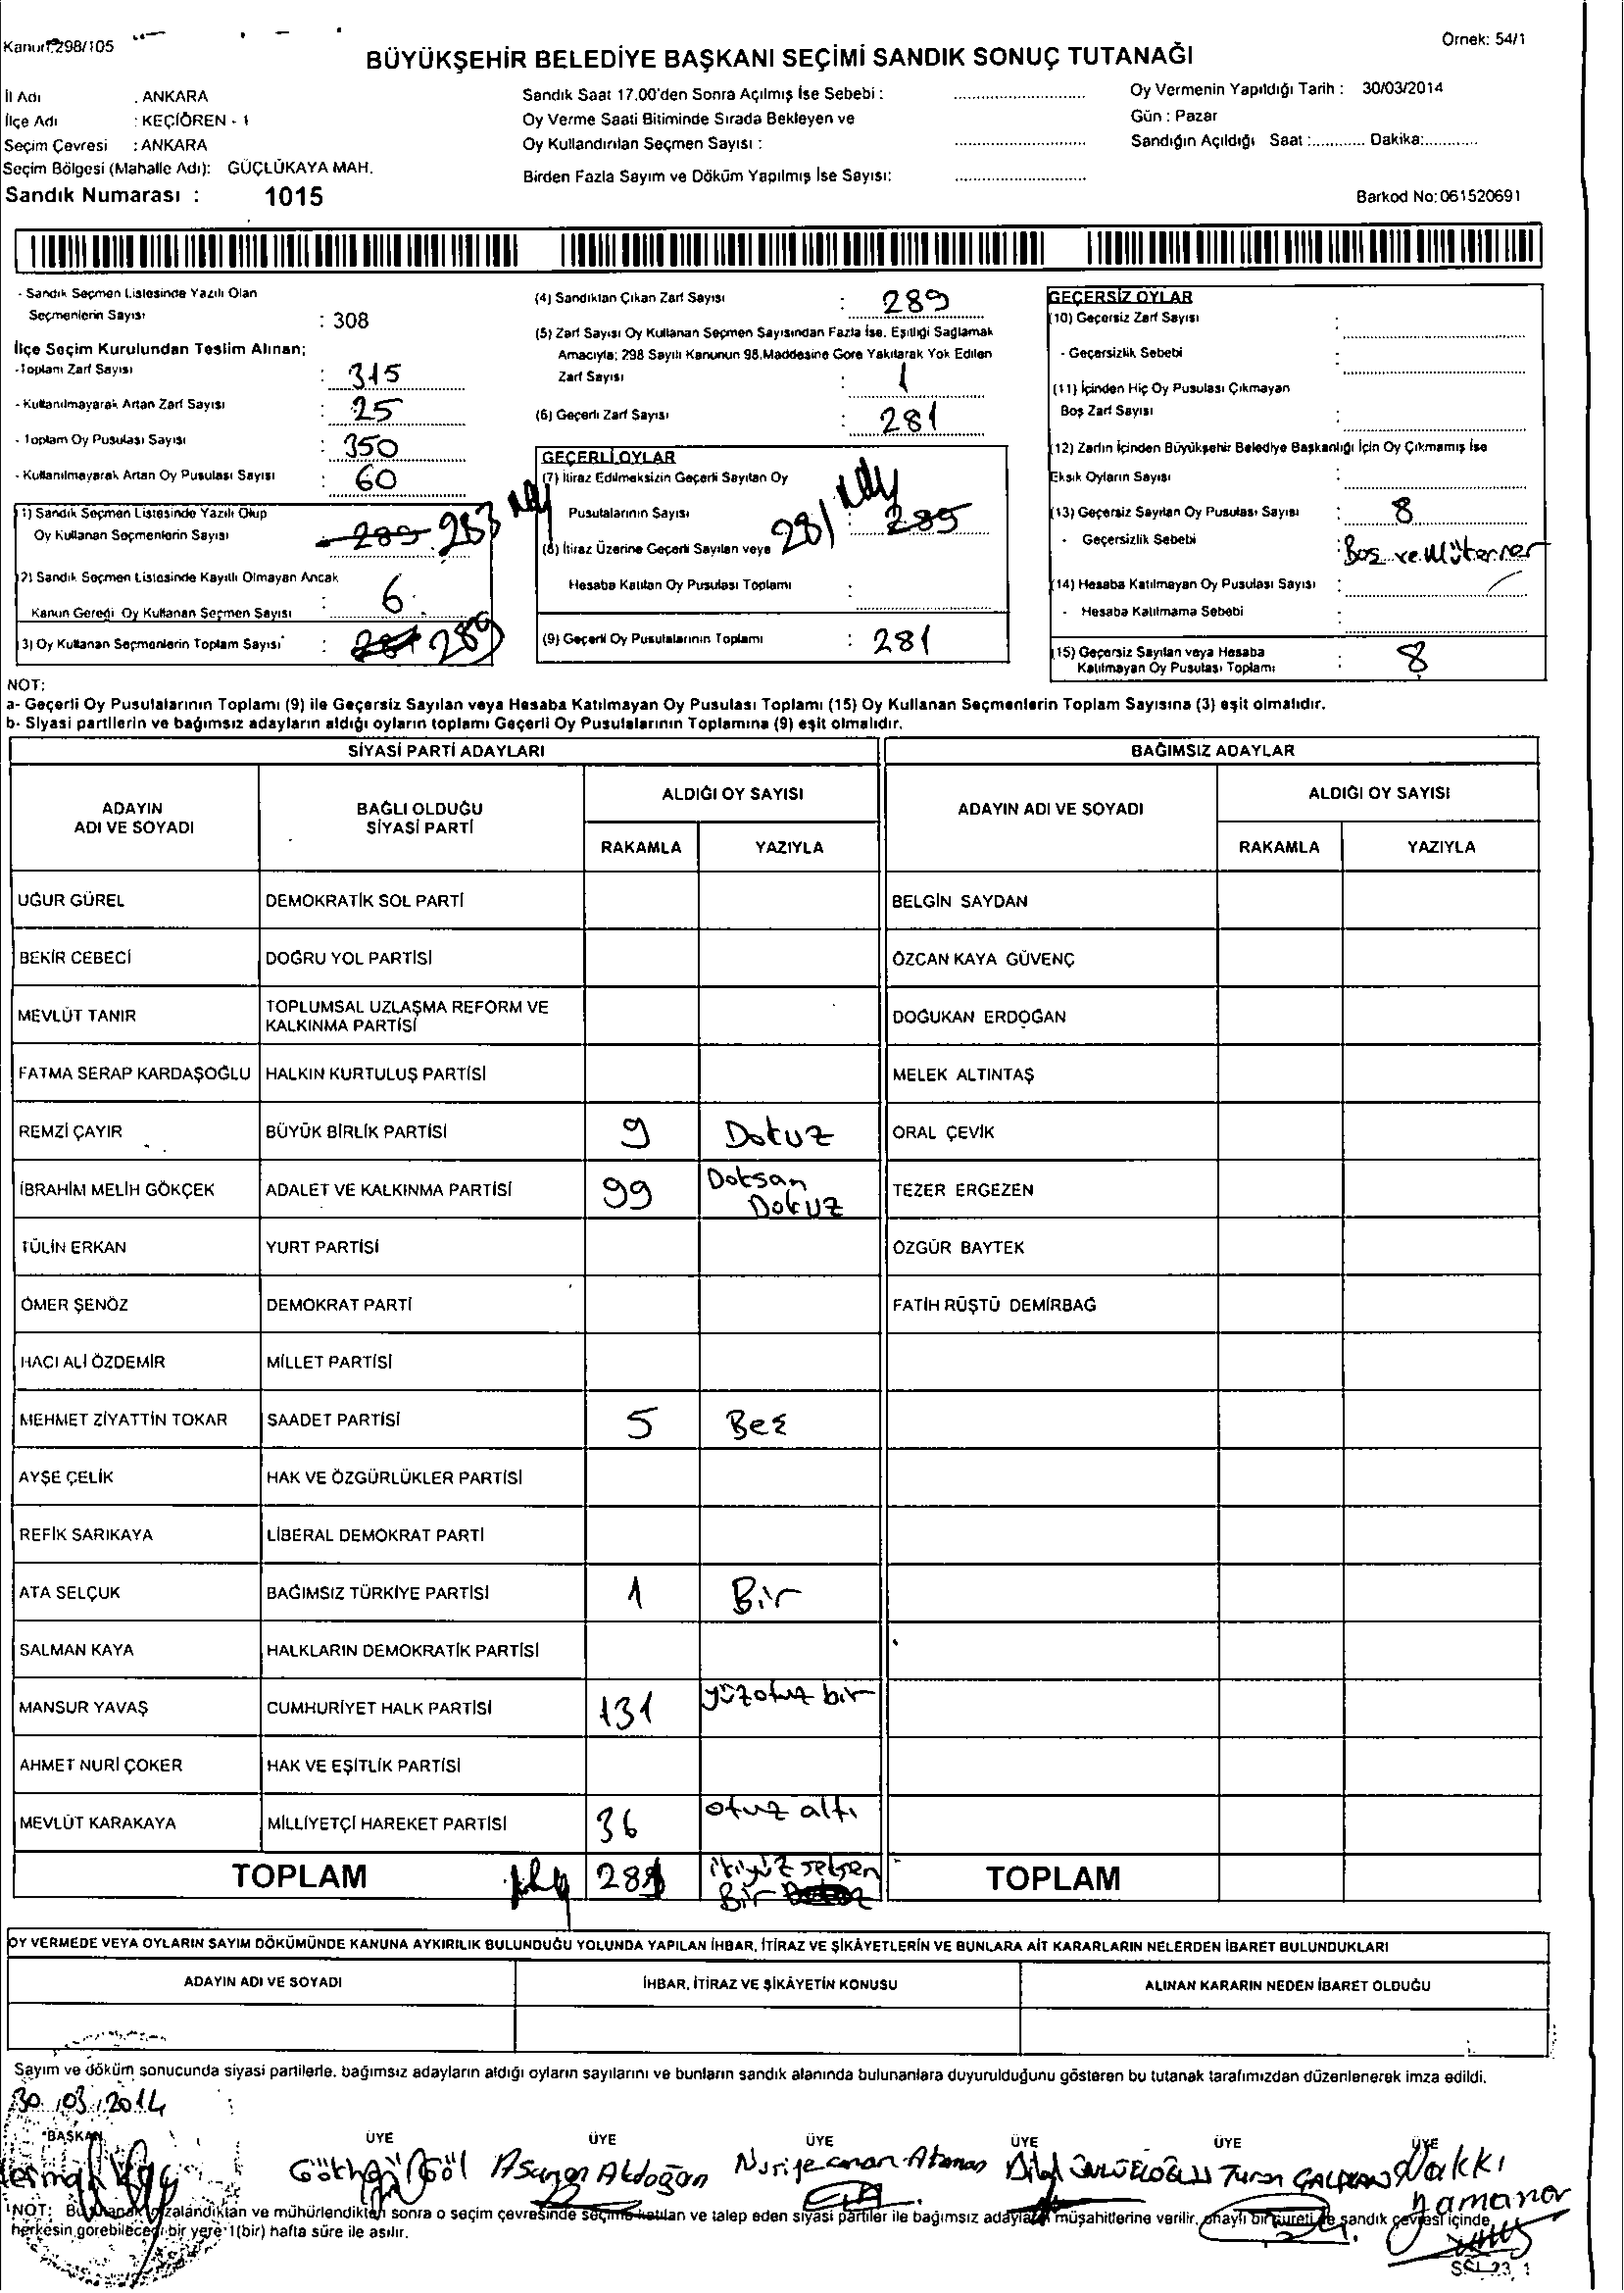 Kanun: 298/105
Örnek: 54/1
BÜYÜKŞEHİR BELEDİYE BAŞKANI SEÇİMİ SANDIK SONUÇ TUTANAĞI
İl Adı : ANKARA
İlçe Adı : KEÇİÖREN - 1
Seçim Çevresi : ANKARA
Seçim Bölgesi (Mahalle Adı): GÜÇLÜKAYA MAH.
Sandık Numarası : 1015
Sandık Saat 17.00'den Sonra Açılmış İse Sebebi :
Oy Verme Saati Bitiminde Sırada Bekleyen ve
Oy Kullandırılan Seçmen Sayısı :
Birden Fazla Sayım ve Döküm Yapılmış İse Sayısı:
Oy Vermenin Yapıldığı Tarih : 30/03/2014
Gün : Pazar
Sandığın Açıldığı Saat :............ Dakika:............
Barkod No:061520691
- Sandık Seçmen Listesinde Yazılı Olan
Seçmenlerin Sayısı : 308
İlçe Seçim Kurulundan Teslim Alınan;
-Toplam Zarf Sayısı : 315
- Kullanılmayarak Artan Zarf Sayısı : 25
- Toplam Oy Pusulası Sayısı : 350
- Kullanılmayarak Artan Oy Pusulası Sayısı : 60
(1) Sandık Seçmen Listesinde Yazılı Olup
Oy Kullanan Seçmenlerin Sayısı 289 283
(2) Sandık Seçmen Listesinde Kayıtlı Olmayan Ancak
Kanun Gereği Oy Kullanan Seçmen Sayısı : 6
(3) Oy Kullanan Seçmenlerin Toplam Sayısı : 281 289
(4) Sandıktan Çıkan Zarf Sayısı : 289
(5) Zarf Sayısı Oy Kullanan Seçmen Sayısından Fazla İse, Eşitliği Sağlamak
Amacıyla; 298 Sayılı Kanunun 98.Maddesine Göre Yakılarak Yok Edilen
Zarf Sayısı : 1
(6) Geçerli Zarf Sayısı : 281
GEÇERLİ OYLAR
(7) İtiraz Edilmeksizin Geçerli Sayılan Oy
Pusulalarının Sayısı : 281 289
(8) İtiraz Üzerine Geçerli Sayılan veya
Hesaba Katılan Oy Pusulası Toplamı :
(9) Geçerli Oy Pusulalarının Toplamı : 281
GEÇERSİZ OYLAR
(10) Geçersiz Zarf Sayısı :
- Geçersizlik Sebebi :
(11) İçinden Hiç Oy Pusulası Çıkmayan
Boş Zarf Sayısı :
(12) Zarfın İçinden Büyükşehir Belediye Başkanlığı İçin Oy Çıkmamış İse
Eksik Oyların Sayısı :
(13) Geçersiz Sayılan Oy Pusulası Sayısı : 8
- Geçersizlik Sebebi : Boş ve
(14) Hesaba Katılmayan Oy Pusulası Sayısı :
- Hesaba Katılmama Sebebi :
(15) Geçersiz Sayılan veya Hesaba
Katılmayan Oy Pusulası Toplamı : 8
NOT:
a- Geçerli Oy Pusulalarının Toplamı (9) ile Geçersiz Sayılan veya Hesaba Katılmayan Oy Pusulası Toplamı (15) Oy Kullanan Seçmenlerin Toplam Sayısına (3) eşit olmalıdır.
b- Siyasi partilerin ve bağımsız adayların aldığı oyların toplamı Geçerli Oy Pusulalarının Toplamına (9) eşit olmalıdır.
SİYASİ PARTİ ADAYLARI
BAĞIMSIZ ADAYLAR
ADAYIN ADI VE SOYADI
BAĞLI OLDUĞU SİYASİ PARTİ
ALDIĞI OY SAYISI
RAKAMLA YAZIYLA
ADAYIN ADI VE SOYADI
ALDIĞI OY SAYISI
RAKAMLA YAZIYLA
UĞUR GÜREL DEMOKRATİK SOL PARTİ BELGİN SAYDAN
BEKİR CEBECİ DOĞRU YOL PARTİSİ ÖZCAN KAYA GÜVENÇ
MEVLÜT TANIR TOPLUMSAL UZLAŞMA REFORM VE KALKINMA PARTİSİ DOĞUKAN ERDOĞAN
FATMA SERAP KARDAŞOĞLU HALKIN KURTULUŞ PARTİSİ MELEK ALTINTAŞ
REMZİ ÇAYIR BÜYÜK BİRLİK PARTİSİ 9 Dokuz ORAL ÇEVİK
İBRAHİM MELİH GÖKÇEK ADALET VE KALKINMA PARTİSİ 99 Doksan Dokuz TEZER ERGEZEN
TÜLİN ERKAN YURT PARTİSİ ÖZGÜR BAYTEK
ÖMER ŞENÖZ DEMOKRAT PARTİ FATİH RÜŞTÜ DEMİRBAĞ
HACI ALİ ÖZDEMİR MİLLET PARTİSİ
MEHMET ZİYATTİN TOKAR SAADET PARTİSİ 5 Beş
AYŞE ÇELİK HAK VE ÖZGÜRLÜKLER PARTİSİ
REFİK SARIKAYA LİBERAL DEMOKRAT PARTİ
ATA SELÇUK BAĞIMSIZ TÜRKİYE PARTİSİ 1 Bir
SALMAN KAYA HALKLARIN DEMOKRATİK PARTİSİ
MANSUR YAVAŞ CUMHURİYET HALK PARTİSİ 131 yüzotuz bir
AHMET NURİ ÇOKER HAK VE EŞİTLİK PARTİSİ
MEVLÜT KARAKAYA MİLLİYETÇİ HAREKET PARTİSİ 36 otuz altı
TOPLAM 281 ikiyüz seksen Bir TOPLAM
OY VERMEDE VEYA OYLARIN SAYIM DÖKÜMÜNDE KANUNA AYKIRILIK BULUNDUĞU YOLUNDA YAPILAN İHBAR, İTİRAZ VE ŞİKÂYETLERİN VE BUNLARA AİT KARARLARIN NELERDEN İBARET BULUNDUKLARI
ADAYIN ADI VE SOYADI İHBAR, İTİRAZ VE ŞİKÂYETİN KONUSU ALINAN KARARIN NEDEN İBARET OLDUĞU
Sayım ve döküm sonucunda siyasi partilerle, bağımsız adayların aldığı oyların sayılarını ve bunların sandık alanında bulunanlara duyurulduğunu gösteren bu tutanak tarafımızdan düzenlenerek imza edildi.
30/03/2014
BAŞKAN ÜYE ÜYE ÜYE ÜYE ÜYE ÜYE
Gökhan Göl Asuman Akdoğan Nuriye Ataman Turan Hakkı
Yamaner
NOT: Bu tutanak imzalandıktan ve mühürlendikten sonra o seçim çevresinde seçime katılan ve talep eden siyasi partiler ile bağımsız adayların müşahitlerine verilir, onaylı bir sureti de sandık çevresi içinde,
herkesin görebileceği bir yere 1(bir) hafta süre ile asılır.